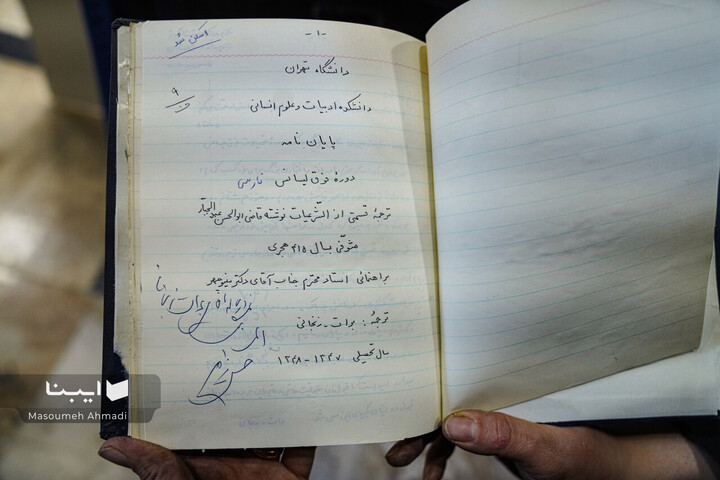 -۱-
اسکن شد
دانشگاه تهران
۹
دانشکده ادبیات و علوم انسانی
پایان نامه
دورهٔ فوق لیسانس فارسی
ترجمهٔ قسمتی از الشرعیات نوشتهٔ قاضی ابوالحسن عبدالجبار
متوفّی بسال ۴۱۵ هجری
براهنمائی استاد محترم جناب آقای دکتر منوچهر
ترجمهٔ : برات - زنجانی
سال تحصیلی ۱۳۴۷-۱۳۴۸
ایبنا
Masoumeh Ahmadi